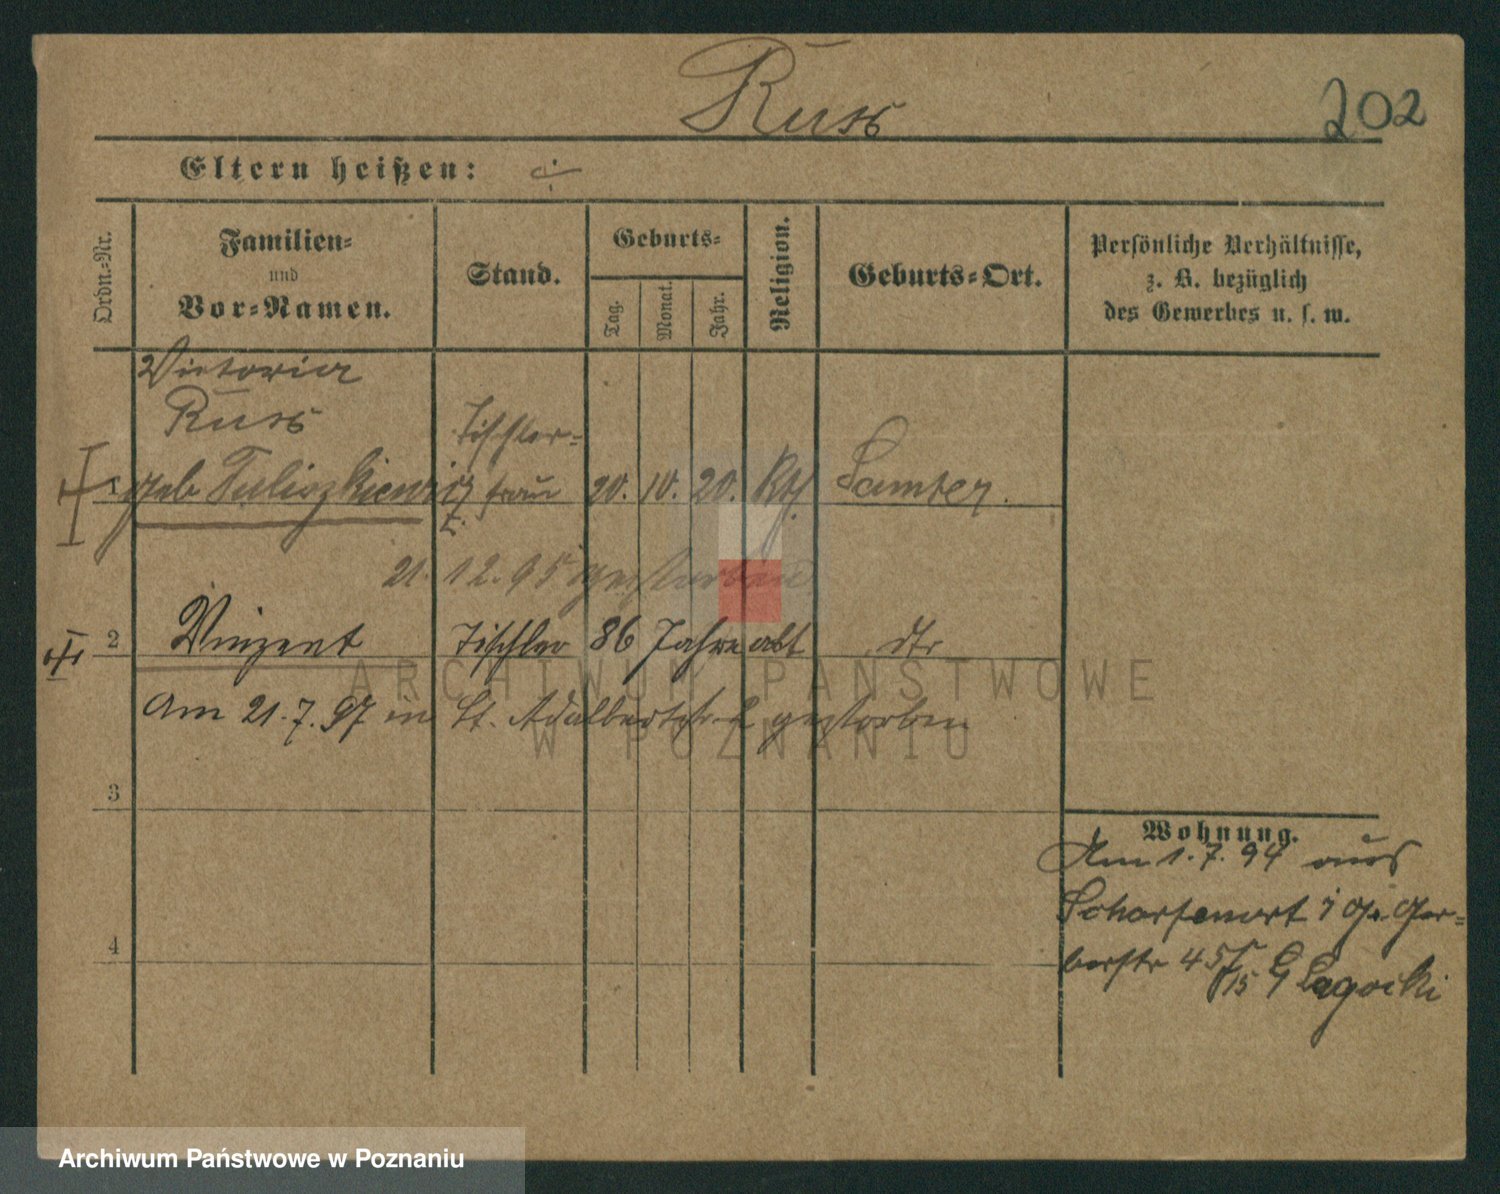 Russ
202
Eltern heißen:
Ordn.-Nr.
Familien-
und
Vor-Namen.
Stand.
Geburts-
Tag.
Monat.
Jahr.
Religion.
Geburts-Ort.
Persönliche Verhältnisse,
z. B. bezüglich
des Gewerbes u. s. w.
Victoria
Russ
Tischler-
1 geb Tuliszkiewicz frau 20. 10. 20. Kth. Samter.
21. 12. 95 gestorben
2 Vinzent Tischler 86 Jahre alt dto
Am 21.7.97 in St. Adalbertstr 2 gestorben
3
4
Wohnung.
Am 1.7.94 aus
Scharfenort Gr. Ger-
berstr 45
ARCHIWUM PAŃSTWOWE
W POZNANIU
Archiwum Państwowe w Poznaniu